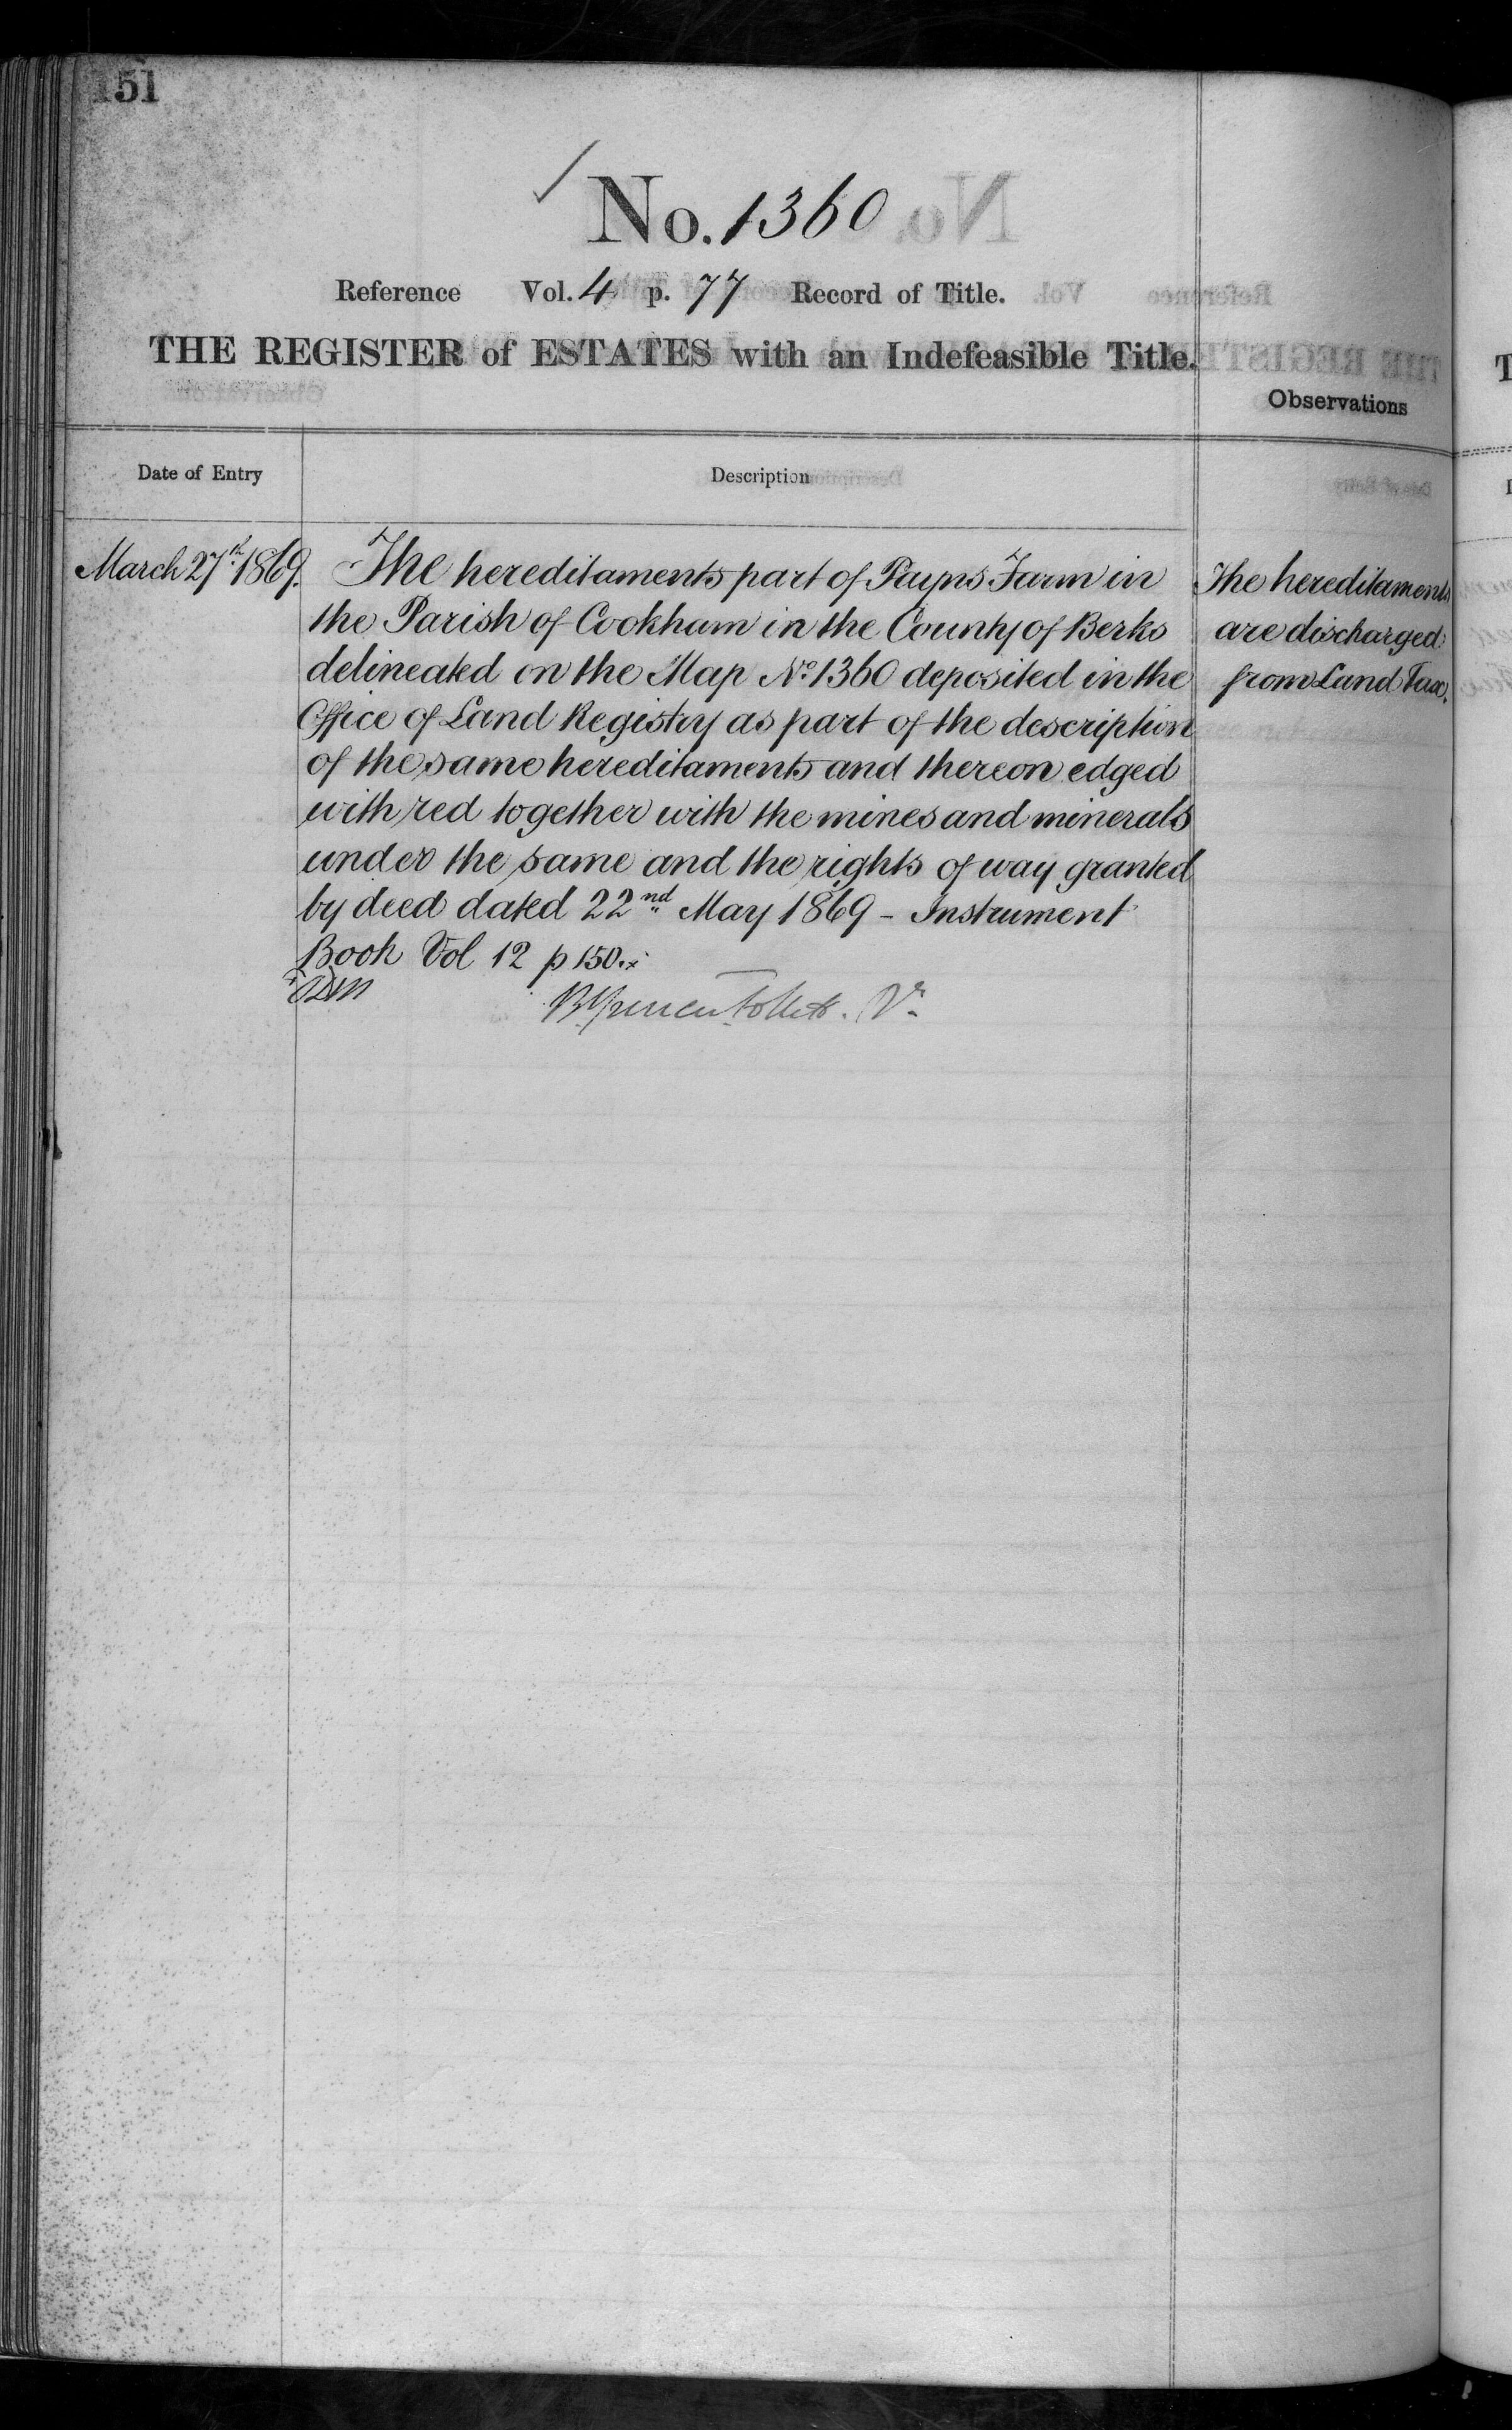 151
No. 1360
Reference Vol. 4 p. 77 Record of Title.
THE REGISTER of ESTATES with an Indefeasible Title.
Observations
Date of Entry
Description
March 27th 1869.
The hereditaments part of Payns Farm in
the Parish of Cookham in the County of Berks
delineated on the Map No 1360 deposited in the
Office of Land Registry as part of the description
of the same hereditaments and thereon edged
with red together with the mines and minerals
under the same and the rights of way granted
by deed dated 22nd May 1869 - Instrument
Book Vol 12 p 150.
The hereditaments
are discharged
from Land Tax.